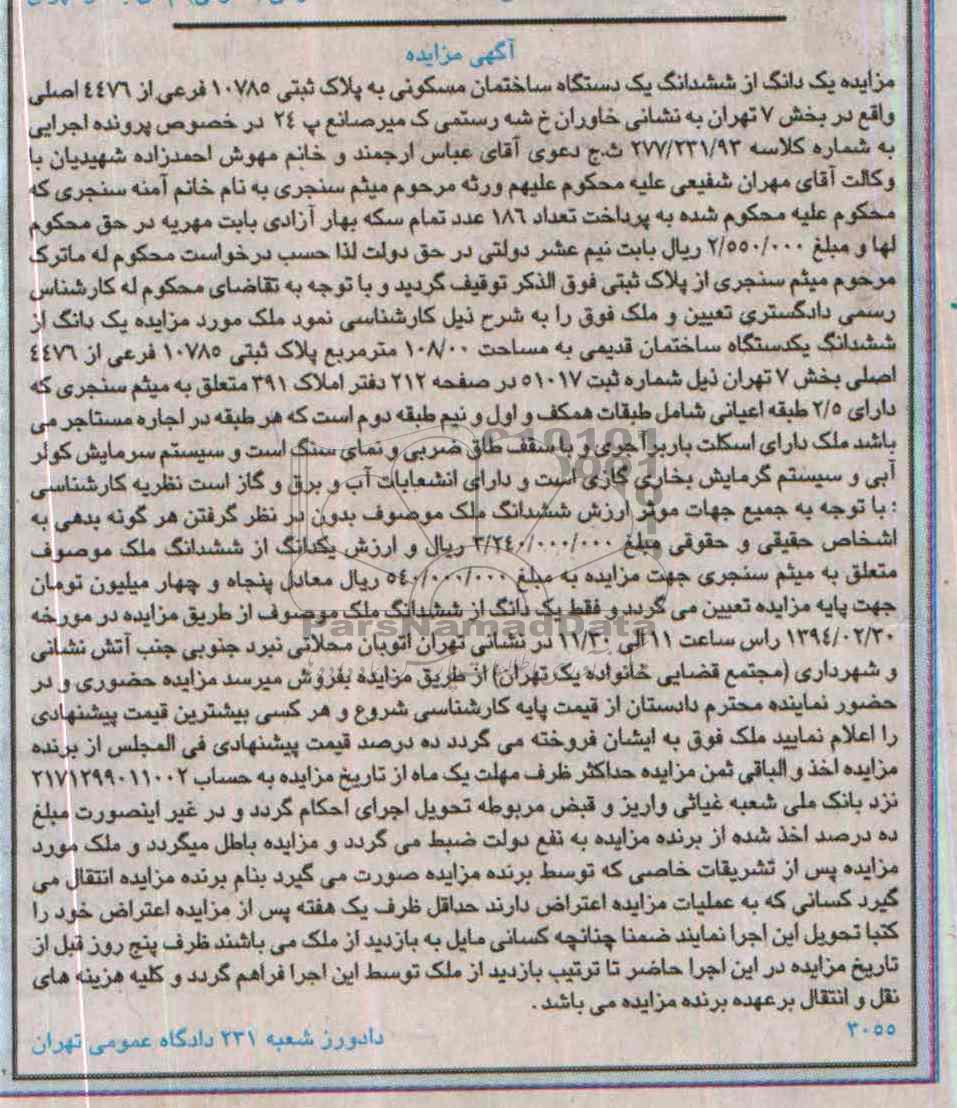 آگهی مزایده
مزایده یک دانگ از ششدانگ یک دستگاه ساختمان مسکونی به پلاک ثبتی ۱۰۷۸۵ فرعی از ٤٤٧٦ اصلی
واقع در بخش ۷ تهران به نشانی خاوران خ شه رستمی ک میرصانع پ ۲٤ در خصوص پرونده اجرایی
به شماره کلاسه ۲۷۷/۲۳۱/۹۳ ث.ج دعوی آقای عباس ارجمند و خانم مهوش احمدزاده شهیدیان با
وکالت آقای مهران شفیعی علیه محکوم علیهم ورثه مرحوم میثم سنجری به نام خانم آمنه سنجری که
محکوم علیه محکوم شده به پرداخت تعداد ۱۸٦ عدد تمام سکه بهار آزادی بابت مهریه در حق محکوم
لها و مبلغ ۲/۵۵۰/۰۰۰ ریال بابت نیم عشر دولتی در حق دولت لذا حسب درخواست محکوم له ماترک
مرحوم میثم سنجری از پلاک ثبتی فوق الذکر توقیف گردید و با توجه به تقاضای محکوم له کارشناس
رسمی دادگستری تعیین و ملک فوق را به شرح ذیل کارشناسی نمود ملک مورد مزایده یک دانگ از
ششدانگ یکدستگاه ساختمان قدیمی به مساحت ۱۰۸/۰۰ مترمربع پلاک ثبتی ۱۰۷۸۵ فرعی از ٤٤٧٦
اصلی بخش ۷ تهران ذیل شماره ثبت ۵۱۰۱۷ در صفحه ۲۱۲ دفتر املاک ۳۹۱ متعلق به میثم سنجری که
دارای ۲/۵ طبقه اعیانی شامل طبقات همکف و اول و نیم طبقه دوم است که هر طبقه در اجاره مستاجر می
باشد ملک دارای اسکلت باربر آجری و با سقف طاق ضربی و نمای سنگ است و سیستم سرمایش کولر
آبی و سیستم گرمایش بخاری گازی است و دارای انشعابات آب و برق و گاز است نظریه کارشناسی
: با توجه به جمیع جهات موثر ارزش ششدانگ ملک موصوف بدون در نظر گرفتن هر گونه بدهی به
اشخاص حقیقی و حقوقی مبلغ ۳/۲٤۰/۰۰۰/۰۰۰ ریال و ارزش یکدانگ از ششدانگ ملک موصوف
متعلق به میثم سنجری جهت مزایده به مبلغ ۵٤۰/۰۰۰/۰۰۰ ریال معادل پنجاه و چهار میلیون تومان
جهت پایه مزایده تعیین می گردد و فقط یک دانگ از ششدانگ ملک موصوف از طریق مزایده در مورخه
۱۳۹٤/۰۲/۳۰ راس ساعت ۱۱ الی ۱۱/۳۰ در نشانی تهران اتوبان محلاتی نبرد جنوبی جنب آتش نشانی
و شهرداری (مجتمع قضایی خانواده یک تهران) از طریق مزایده بفروش میرسد مزایده حضوری و در
حضور نماینده محترم دادستان از قیمت پایه کارشناسی شروع و هر کسی بیشترین قیمت پیشنهادی
را اعلام نمایید ملک فوق به ایشان فروخته می گردد ده درصد قیمت پیشنهادی فی المجلس از برنده
مزایده اخذ و الباقی ثمن مزایده حداکثر ظرف مهلت یک ماه از تاریخ مزایده به حساب ۲۱۷۱۲۹۹۰۱۱۰۰۲
نزد بانک ملی شعبه غیاثی واریز و قبض مربوطه تحویل اجرای احکام گردد و در غیر اینصورت مبلغ
ده درصد اخذ شده از برنده مزایده به نفع دولت ضبط می گردد و مزایده باطل میگردد و ملک مورد
مزایده پس از تشریفات خاصی که توسط برنده مزایده صورت می گیرد بنام برنده مزایده انتقال می
گیرد کسانی که به عملیات مزایده اعتراض دارند حداقل ظرف یک هفته پس از مزایده اعتراض خود را
کتبا تحویل این اجرا نمایند ضمنا چنانچه کسانی مایل به بازدید از ملک می باشند ظرف پنج روز قبل از
تاریخ مزایده در این اجرا حاضر تا ترتیب بازدید از ملک توسط این اجرا فراهم گردد و کلیه هزینه های
نقل و انتقال بر عهده برنده مزایده می باشد .
۳۰۵۵
دادورز شعبه ۲۳۱ دادگاه عمومی تهران
ParsNamadData